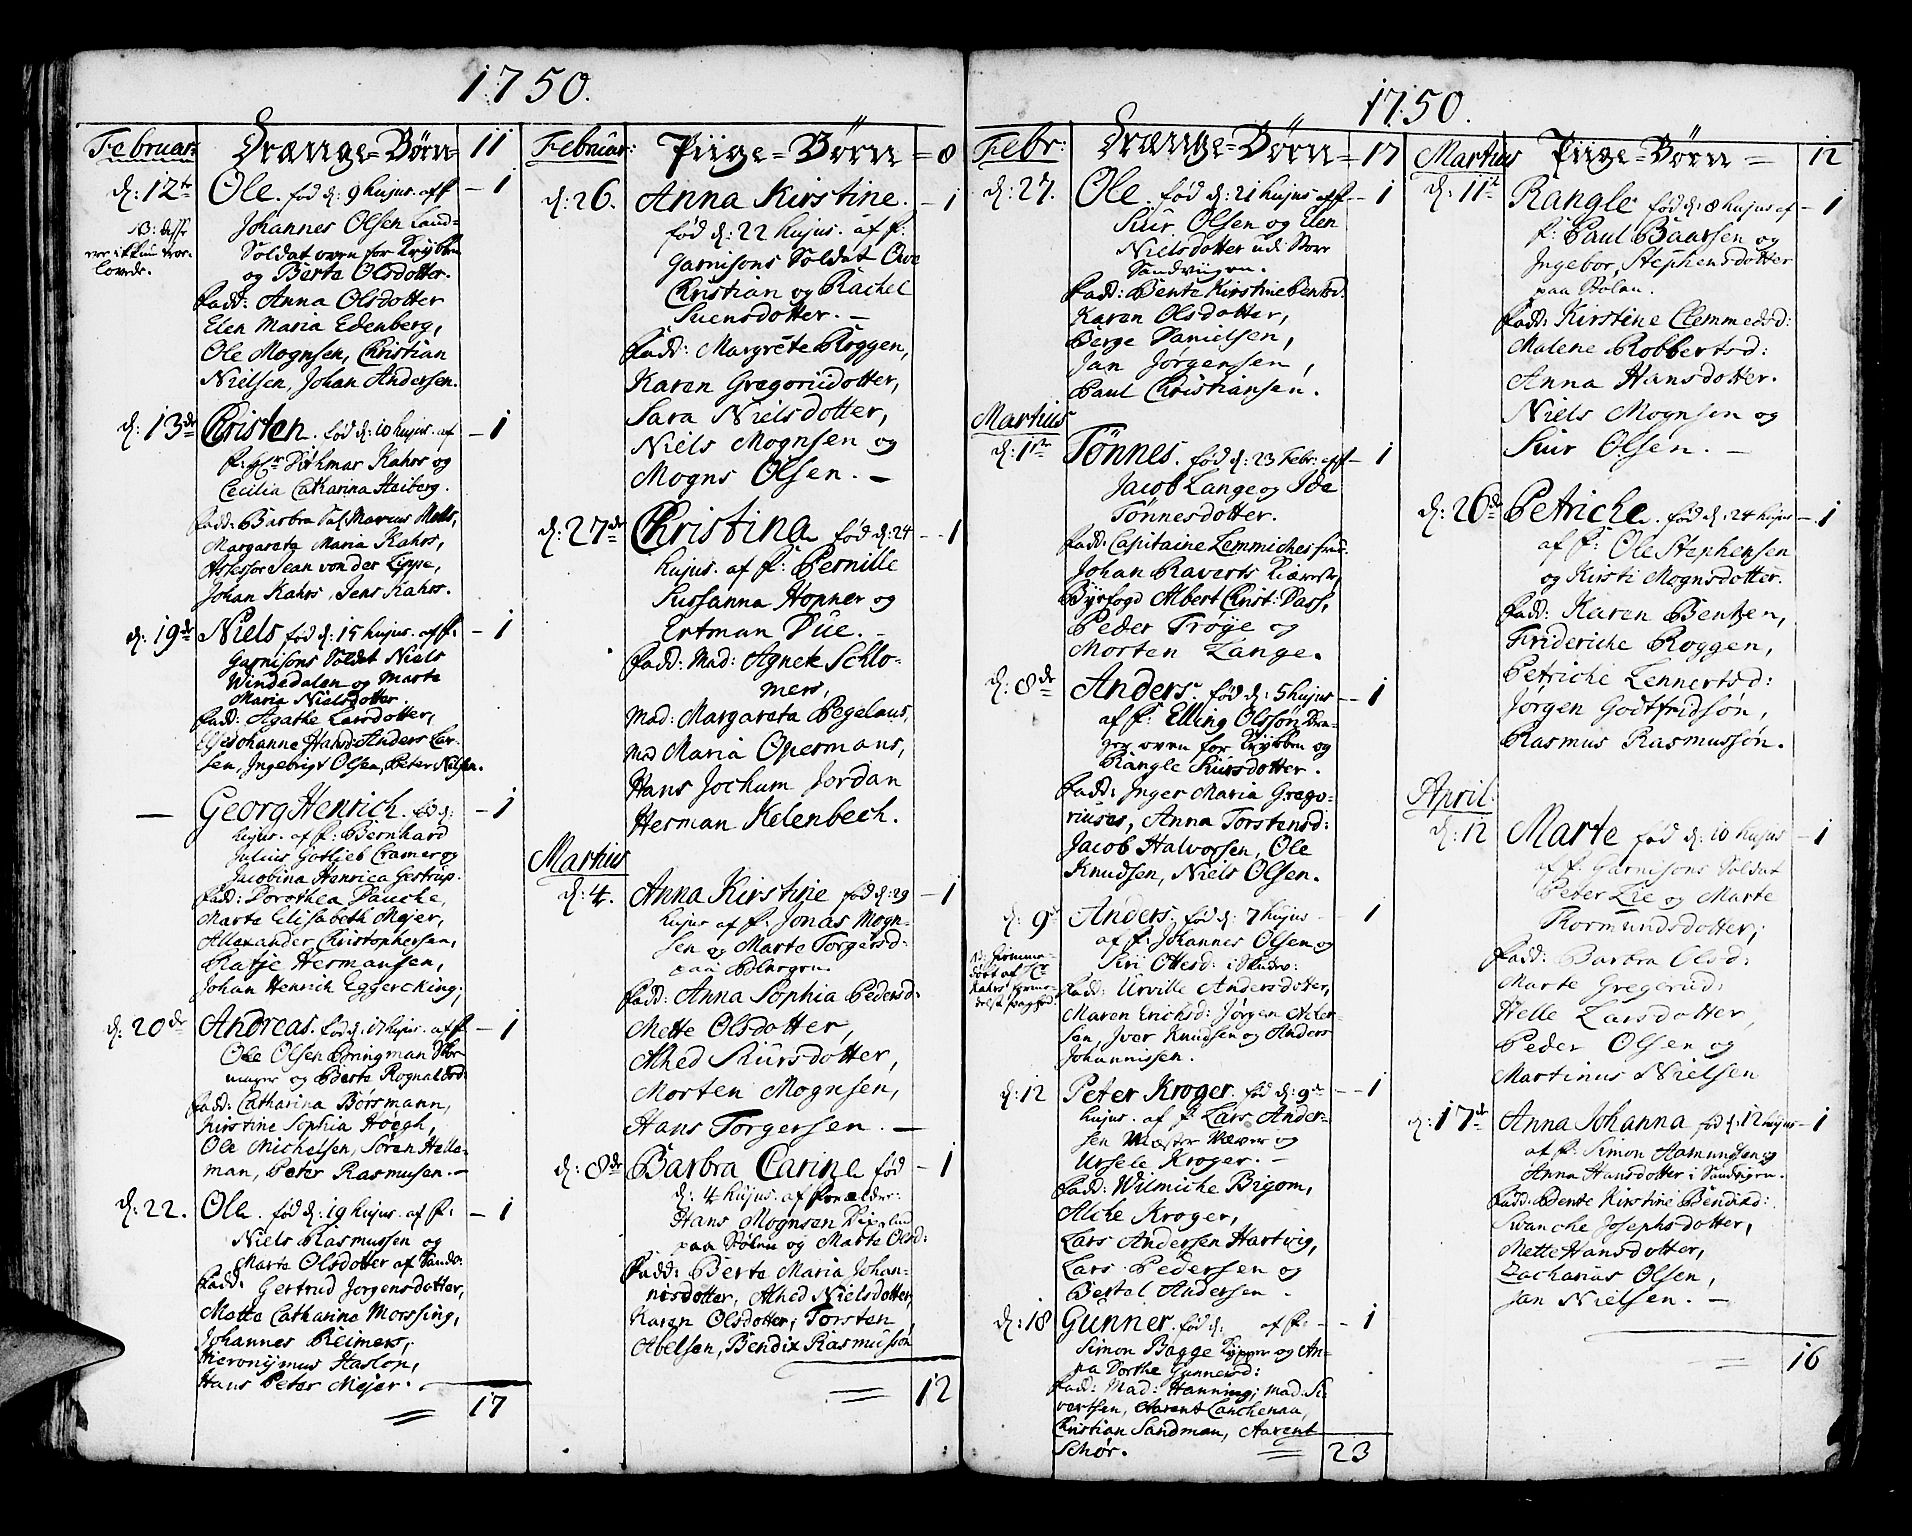 1750.
Februar:
Drænge=Børn
11
d: 12te
Ole. fød d: 9 hujus. af F
1
Johannes Olsen Land-
Soldat oven for Krybben
og Berte Olsdotter.
Fadd: Anna Olsdotter
Elen Maria Edenberg,
Ole Mognsen, Christian
Nielsen, Johan Andersen.
d: 13de
Christen. fød d: 10 hujus. af
1
F: Hr Dithmar Kahrs og
Cecilia Catharina Heiberg.
Fadd: Barbra Sal: Marcus
Margareta Maria Kahrs,
Assessor Jean von der Lippe,
Johan Kahrs, Jens Kahrs.
d: 19de
Niels fød d: 15 hujus. af F:
1
Garnisons Soldat Niels
Windedalen og Marte
Maria Nielsdotter.
Fadd: Agathe Larsdotter,
Johanne Hansd: Anders Lar-
sen, Ingebrigt Olsen, Peter Nilsen.
—
Georg Henrich. fød d:
1
hujus. af F: Bernhard
Julius Gotlieb Cramer og
Jacobina Henrica Gestrup.
Fadd: Dorothea Dauche,
Marta Elisabeth Mejer,
Allexander Christophersen,
Katje Hermansen,
Johan Henrich Eggercking;
d: 20de
Andreas. fød d: 17 hujus. af F
1
Ole Olsen Bringman Skoe
mager og Berte Rognaldsd:
Fadd: Catharina Borsmann,
Kirstine Sophia Høegh,
Ole Michelsen, Søren Helle-
man, Peter Rasmusen.
d: 22.
Ole. fød d: 19 hujus. af F:
1
Niels Rasmussen og
Marte Olsdotter af Sandv:
Fadd: Gertrud Jorgensdotter,
Mette Catharina Morssing,
Johannes Reimers,
Hieronÿmus Haslop,
Hans Peter Mejer.
17
Februar:
Piige=Børn=
8
d: 26.
Anna Kirstine.
1
fød d: 22 hujus. af F:
Garnisons Soldat Ove
Christian og Rachel
Suensdotter.
Fadd: Margrete Roggen,
Karen Gregoriidotter,
Sara Nielsdotter,
Niels Mognsen og
Mogns Olsen.
d: 27de
Christina fød d: 24
1
hujus. af F: Pernille
Sussanna Høpner og
Ertman Due.
Fadd: Mad: Agnete Schlo-
mers,
Mad: Margareta Pegelaus,
Mad Maria Opermans,
Hans Jochum Jordan
Herman Kelenbech.
Martius
d: 4.
Anna Kirstine fød d: 29
1
hujus af F: Jonas Mogn-
sen og Marte Torgersd:
Fadd: Anna Sophia Pedersd:
Mette Olsdotter,
Ahed Siursdotter,
Morten Mognsen,
Hans Torgersen.
d: 8de
Barbra Carine fød
1
d: 4 hujus. af Forældre:
Hans Mognsen
paa Dølen og Marte Olsd:
Fadd: Berte Maria Johan-
nisdotter, Ahed Nielsdotter,
Karen Olsdotter, Torsten
Abelsen, Bendix Rasmussøn
12
1750.
Febr:
Drænge=Børn=
17
d: 27.
Ole. fød d: 21 hujus af F.
1
Siur Olsen og Elen
Nielsdotter ud. Store
Sandviigen.
Fadd: Bente Kirstine Bentsd:
Karen Olsdotter,
Berge Danielsen,
Jan Jørgensen,
Paul Christiansen.
Martius
d: 1te
Tönnes. fød d: 23 Febr: af F
1
Jacob Lange og Ide
Tönnesdotter.
Fadd: Capitaine Lemmiches frue.
Johan Raverts
Byefogd Albert Christ: Dass,
Peder Troye og
Morten Lange.
d: 8de
Anders. fød d: 5 hujus
1
af F: Elling Olssøn Dra-
ger oven for Krybben og
Rangle Siursdotter.
Fadd: Inger Maria Grego-
riuses, Anna Torstensd:
Jacob Halvorsen, Ole
Knudsen, Niels Olsen.
d: 9
Anders. fød d: 7 hujus
1
af F: Johannes Olsen og
Siri Ottesd:
Fadd: Urville Andersdotter,
Maren Erichsd: Jørgen Peter-
sen, Iver Knudsen og Anders
Johannissen.
d: 12
Peter Krøger. fød d: 9de
1
hujus. af F: Lars Ander-
sen Mæster Væver og
Ursele Krøger.
Fadd: Wilmiche Bigom,
Alche Krøger,
Lars Andersen Hartvig,
Lars Pedersen og
Bertel Andersen.
d: 18
Gunner. fød d: af F:
1
Simon Bagge Kypper og An-
na Dorthe Gunnersd:
Fadd: Mad: Hanning; Mad: Si-
vertsen, Aarent Canchenaa,
Christian Sandman, Aarent
Schør.
23
Martius
Piige=Børn=
12
d: 11te
Rangle fød d: 8 hujus af
1
F: Paul Baarsen og
Ingebor, Stephensdotter
paa Dølen.
Fadd: Kirstine Clemmedsd:
Malene Robbertsd:
Anna Hansdotter.
Niels Mognsen og
Siur Olsen.
d: 26de
Petriche. fød d: 24 hujus
1
af F: Ole Stephensen
og Kirsti Mognsdotter.
Fadd: Karen Bentzen,
Frideriche Roggen,
Petriche Lennertsd:
Jørgen Godtfridsøn,
Rasmus Rasmussøn.
April:
d: 12
Marte fød d: 10 hujus
1
af F: Garnisons Soldat
Peter Lie og Marte
Thormundsdotter;
Fadd: Barbra Olsd:
Marte Gregerud:
Helle Larsdotter,
Peder Olsen og
Martinus Nielsen
d: 17de
Anna Johanna, fød d: 12 hujus
1
af F: Simon Aamundsen og
Anna Hansdotter i Sandvigen.
Fadd: Bente Kirstine Bendixd:
Swanche Josephsdotter,
Mette Hansdotter,
Zacharias Olsen,
Jan Nielsen.
16